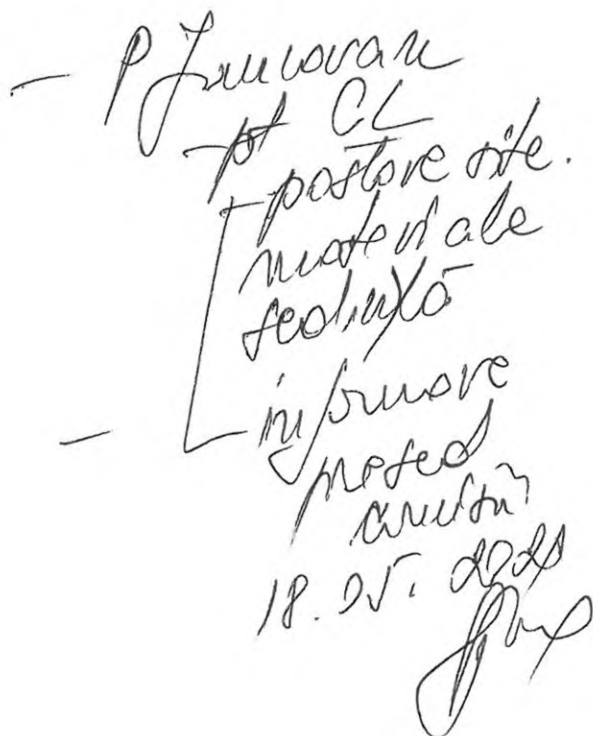 - P
pt CL
- postare site.
materiale
ședință
- informare
președ
comisii
18.05.2021